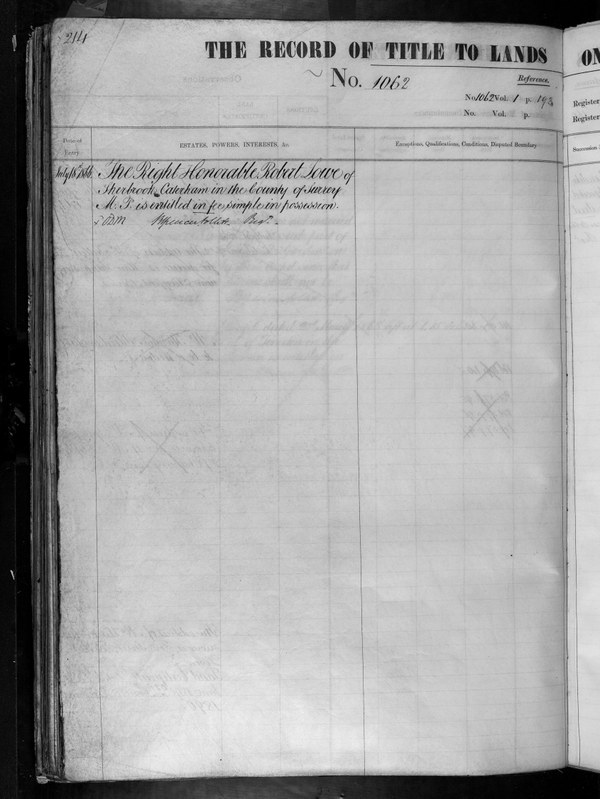 214
THE RECORD OF TITLE TO LANDS
No. 1062
Reference.
No. 1062 Vol. 1 p. 193
No. Vol. p.
Date of Entry
ESTATES, POWERS, INTERESTS, &c.
Exceptions, Qualifications, Conditions, Disputed Boundary
July 18, 1866
The Right Honorable Robert Lowe of
Sherbrook, Caterham in the County of Surrey
M.P. is entitled in fee simple in possession.
Regr.
ON
Register
Register
Succession